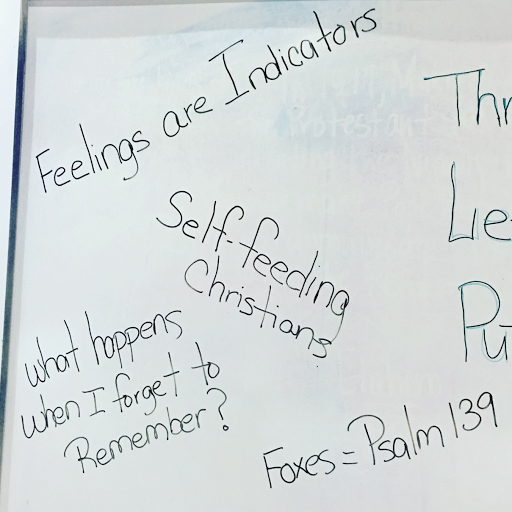 Feelings are Indicators
Protestant
Thr
Self-feeding
Christians
Le
Pu
What happens
when I forget to
Remember?
Foxes = Psalm 139